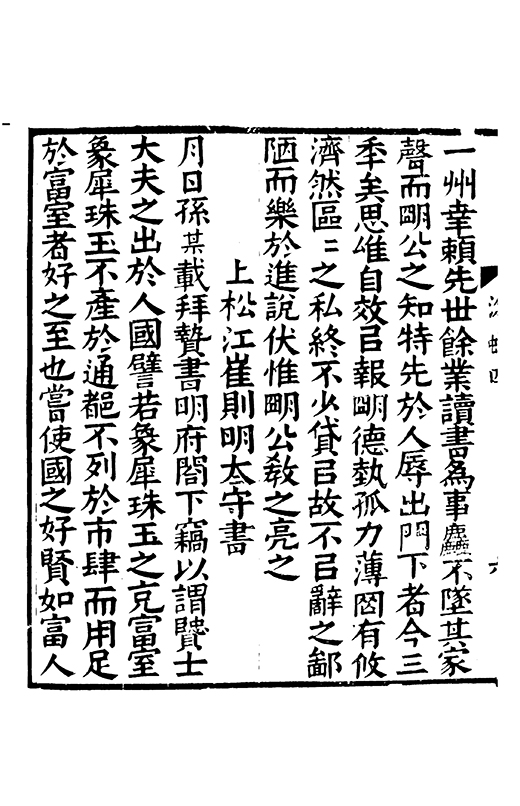 一州幸賴先世餘業讀書爲事麤不墜其家
聲而朙公之知特先於人辱出門下者今三
季矣思惟自效㠯報朙德埶孤力薄罔有攸
濟然區〻之私終不少貸㠯故不㠯辭之鄙
陋而樂於進說伏惟朙公敎之亮之
上松江崔則明太守書
月日孫某載拜贄書明府閤下竊以謂賢士
大夫之出於人國譬若象犀珠玉之充富室
象犀珠玉不產於通都不列於市肆而用足
於富室者好之至也嘗使國之好賢如富人